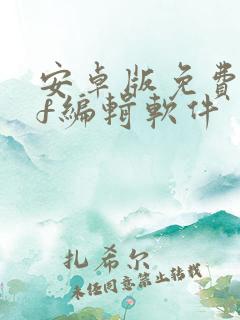 安卓版免費
f編輯軟件
扎希尔
未经同意禁止转载